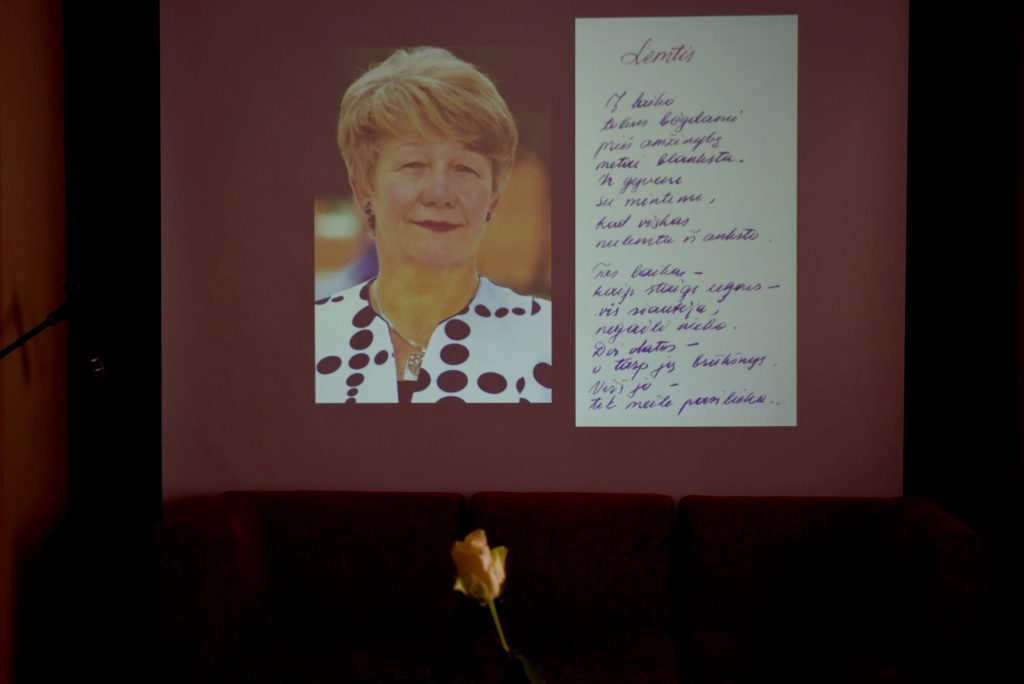 Lemtis
Į laiko
tolius bėgdami
prieš amžinybę
netai blanksta.
Ir gyveni
su mintimi,
kad viskas
nulemta iš anksto.
Tas laikas –
kaip staigi ugnis –
vis siautėja,
negaili nieko.
Dvi datos –
o tarp jų brūkšnys.
Virš jo –
tik meilė pasilieka...